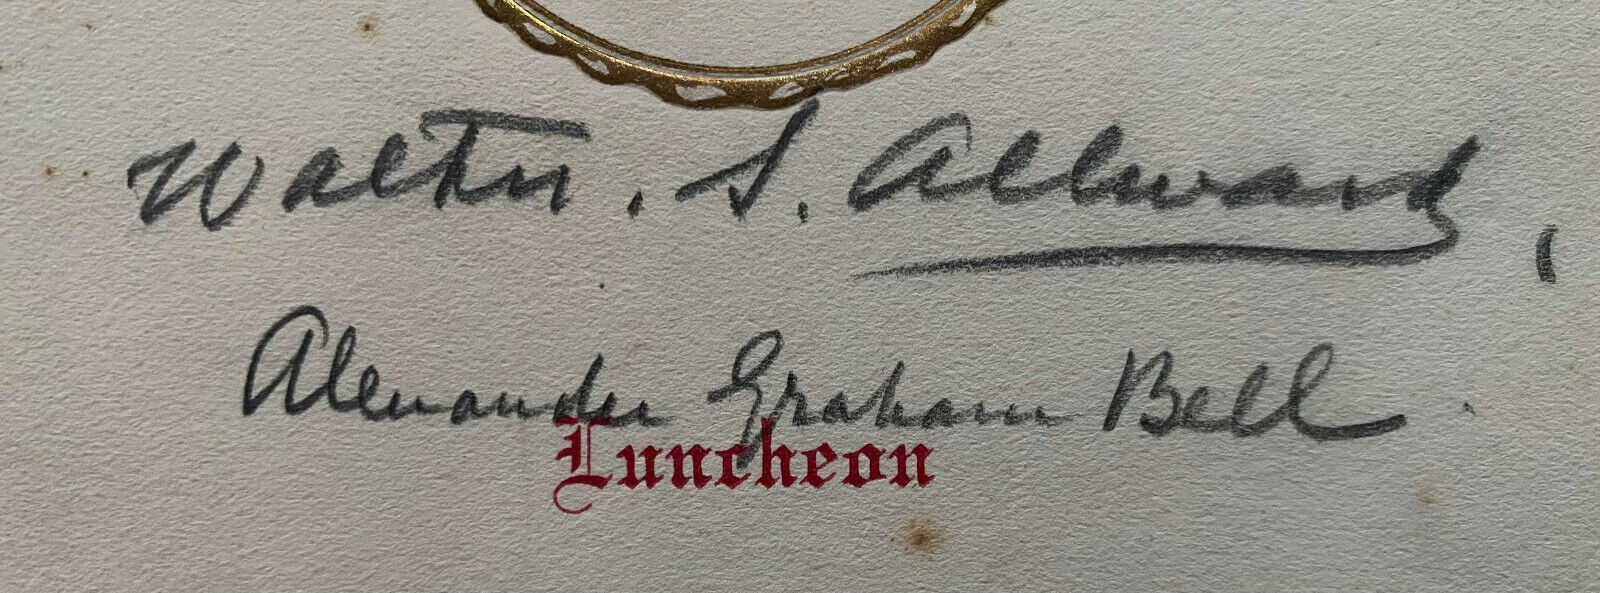 Walter. S. Allward,
Alexander Graham Bell.
Luncheon